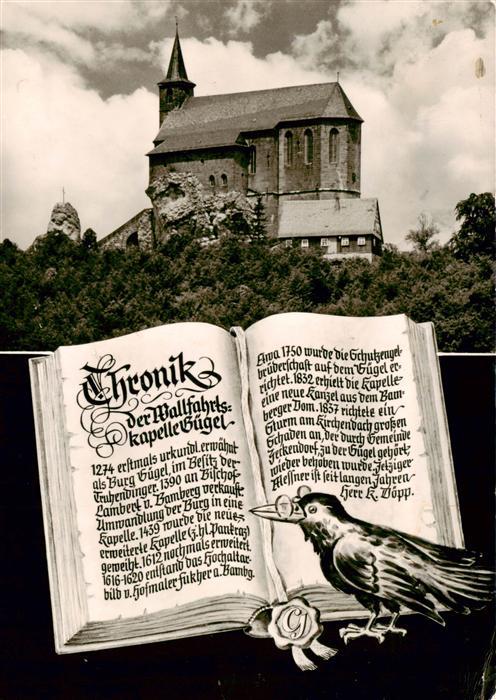 Chronik
der Wallfahrts-
kapelle Gügel
1274 erstmals urkundl. erwähnt
als Burg Gügel, im Besitz der
Truhendinger. 1390 an Bischof
Lambert v. Bamberg verkauft.
Umwandlung der Burg in eine
Kapelle. 1439 wurde die neue
erweiterte Kapelle (z. hl. Pankraz)
geweiht. 1612 nochmals erweitert.
1616-1620 entstand das Hochaltar-
bild v. Hofmaler Fukher a. Bambg.
Etwa 1750 wurde die Schutzengel-
brüderschaft auf dem Gügel er-
richtet. 1832 erhielt die Kapelle
eine neue Kanzel aus dem Bam-
berger Dom. 1837 richtete ein
Sturm am Kirchendach großen
Schaden an, der durch Gemeinde
Zeckendorf, zu der Gügel gehört,
wieder behoben wurde. Jetziger
Messner ist seit langen Jahren
Herr K. Döpp.
G